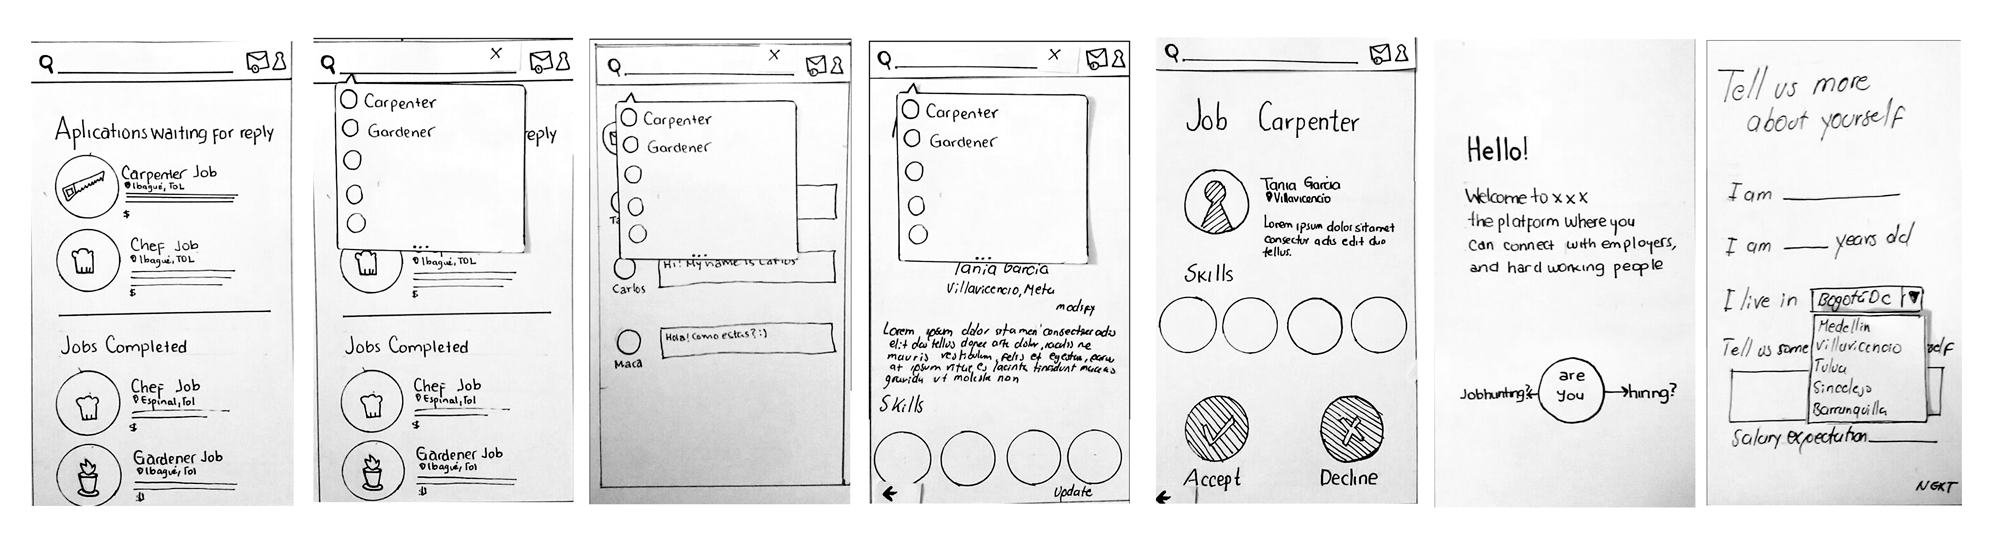 Aplications waiting for reply
Carpenter Job
Ibagué, TOL
$
Chef Job
Ibagué, TOL
$
Jobs Completed
Chef Job
Espinal, Tol
$
Gardener Job
Ibagué, Tol
X
Carpenter
Gardener
reply
Ibagué, TOL
$
Jobs Completed
Chef Job
Espinal, Tol
$
Gardener Job
Ibagué, Tol
X
Carpenter
Gardener
Ta
Hi! My name is
Carlos
Hola! Como estas? :)
Maca
X
Carpenter
Gardener
Tania Garcia
Villavicencio, Meta
modify
Lorem ipsum dolor
mauris vestibulum, felis et egestas,
at ipsum vitae
gravida ut molestie non
Skills
Update
Job Carpenter
Tania Garcia
Villavicencio
Lorem ipsum dolor sitamet
consectur adis edit duo
tellus.
Skills
Accept
Decline
Hello!
Welcome to xxx
the platform where you
can connect with employers,
and hard working people
are
you
Jobhunting?
hiring?
Tell us more
about yourself
I am
I am years old
I live in Bogotá DC
Medellin
Villavicencio
Tulua
Sincelejo
Barranquilla
Tell us some self
Salary expectation
NEXT